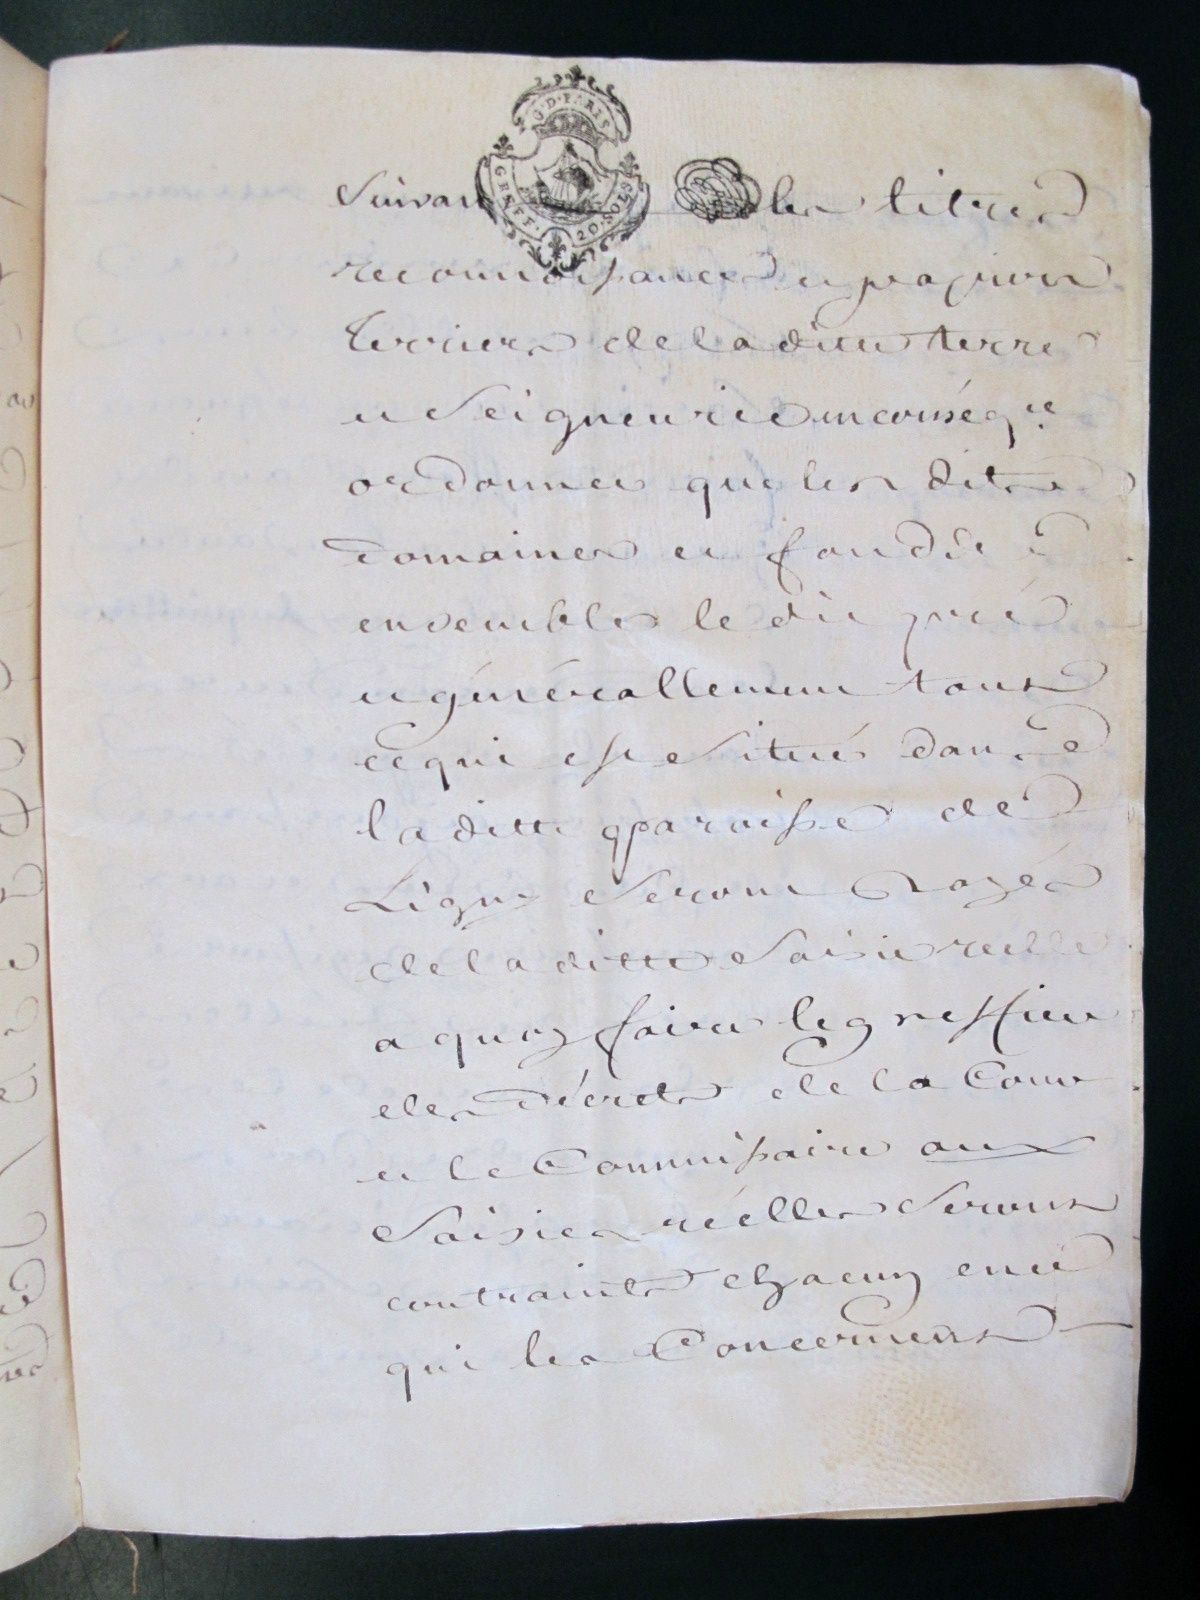 G·D·PARIS
GREFF. 20·SOLS
Suivant les titres
reconnoissances et papiers
terriers de la ditte terre
et Seigneurie en conséq.ce
ordonner que les dits
domaines et fonds
ensembles le dit pré
et générallement tous
ce qui est situé dans
la ditte paroisse de
Ligny seront Rayés
de la ditte Saisie reelle
a quoy faire le greffier
des Décrets de la Cour
et le Commissaire aux
Saisies réelles Seront
contraints chacun en ce
qui les Concernent